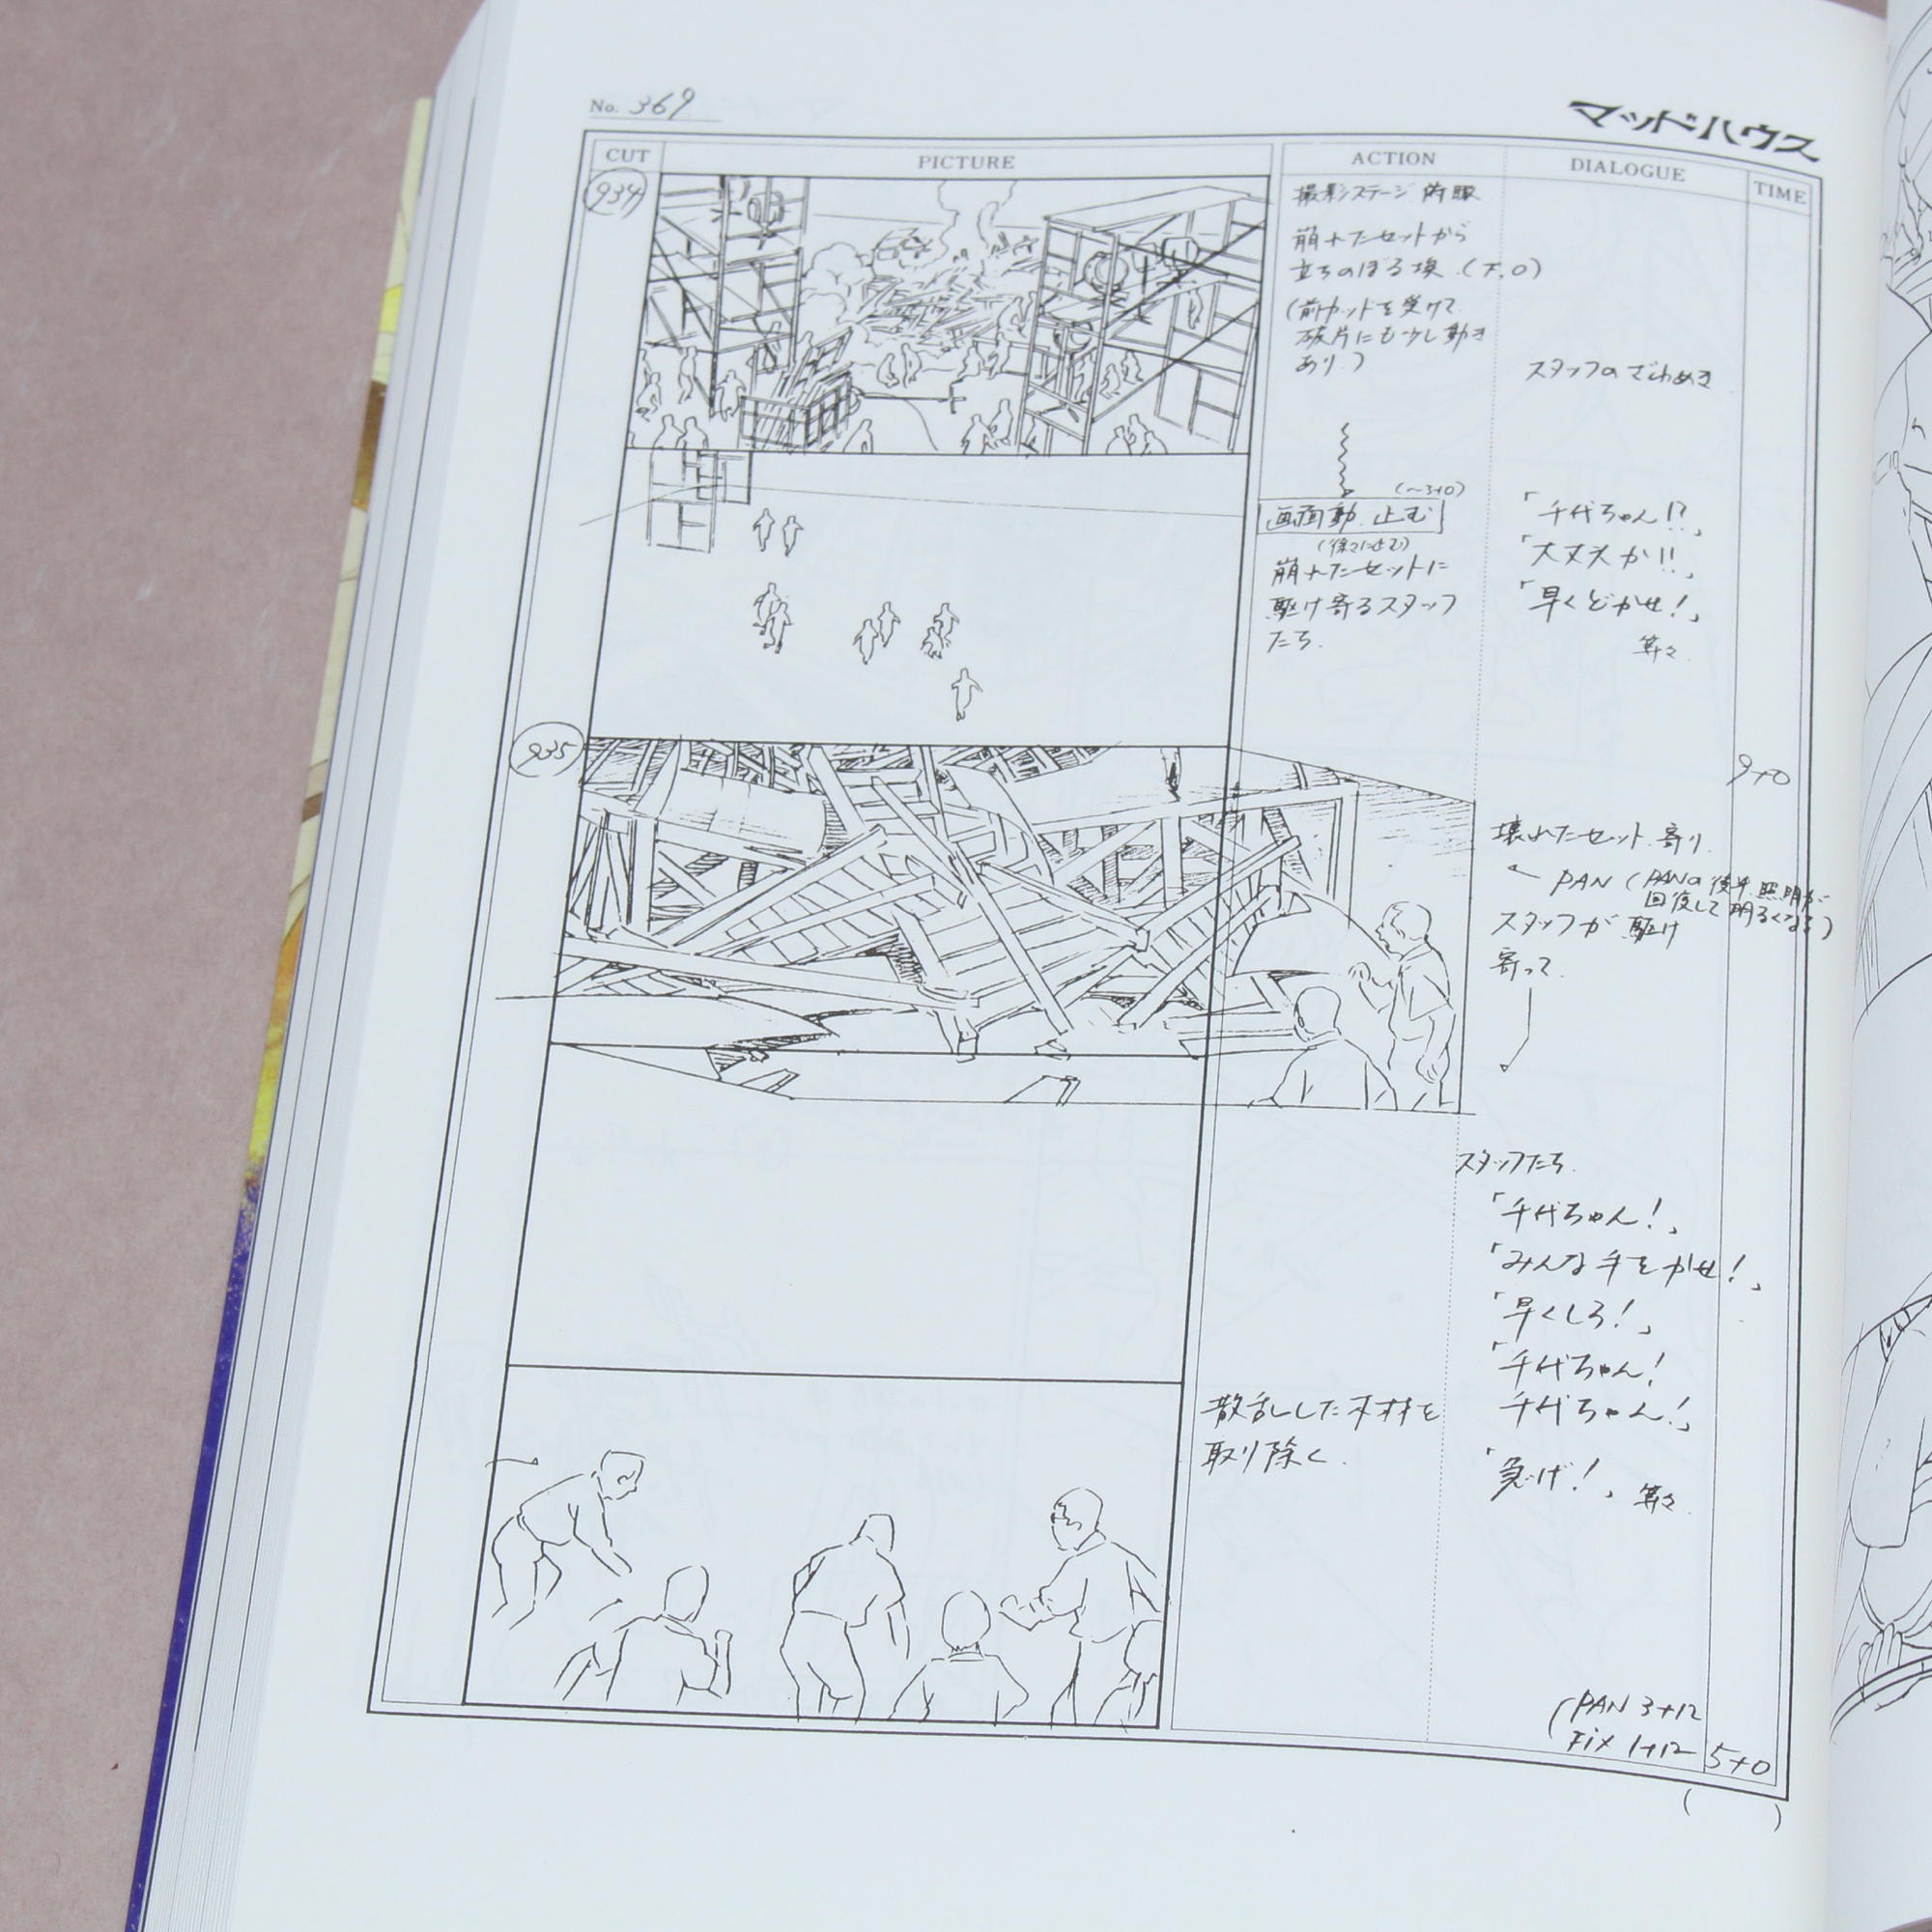 No. 369
マッドハウス
CUT
PICTURE
ACTION
DIALOGUE
TIME
934
撮影ステージ 俯瞰
崩れたセットから
立ちのぼる埃.(T.O)
(前カットを受けて
破片にも少し動き
あり.)
スタッフのざわめき
(〜3+0)
画面動 止む
(徐々に止む)
崩れたセットに
駆け寄るスタッフ
たち.
「千代ちゃん!?」
「大丈夫か!!」
「早くどかせ!」
等々
9+0
935
壊れたセット.寄り.
PAN (PANの後半.照明が
回復して明るくなる)
スタッフが駆け
寄って.
スタッフたち.
「千代ちゃん!」
「みんな手をかせ!」
「早くしろ!」
「千代ちゃん!
千代ちゃん!」
「急げ!」等々.
散乱した木材を
取り除く.
(PAN 3+12
FIX 1+12
5+0
( )